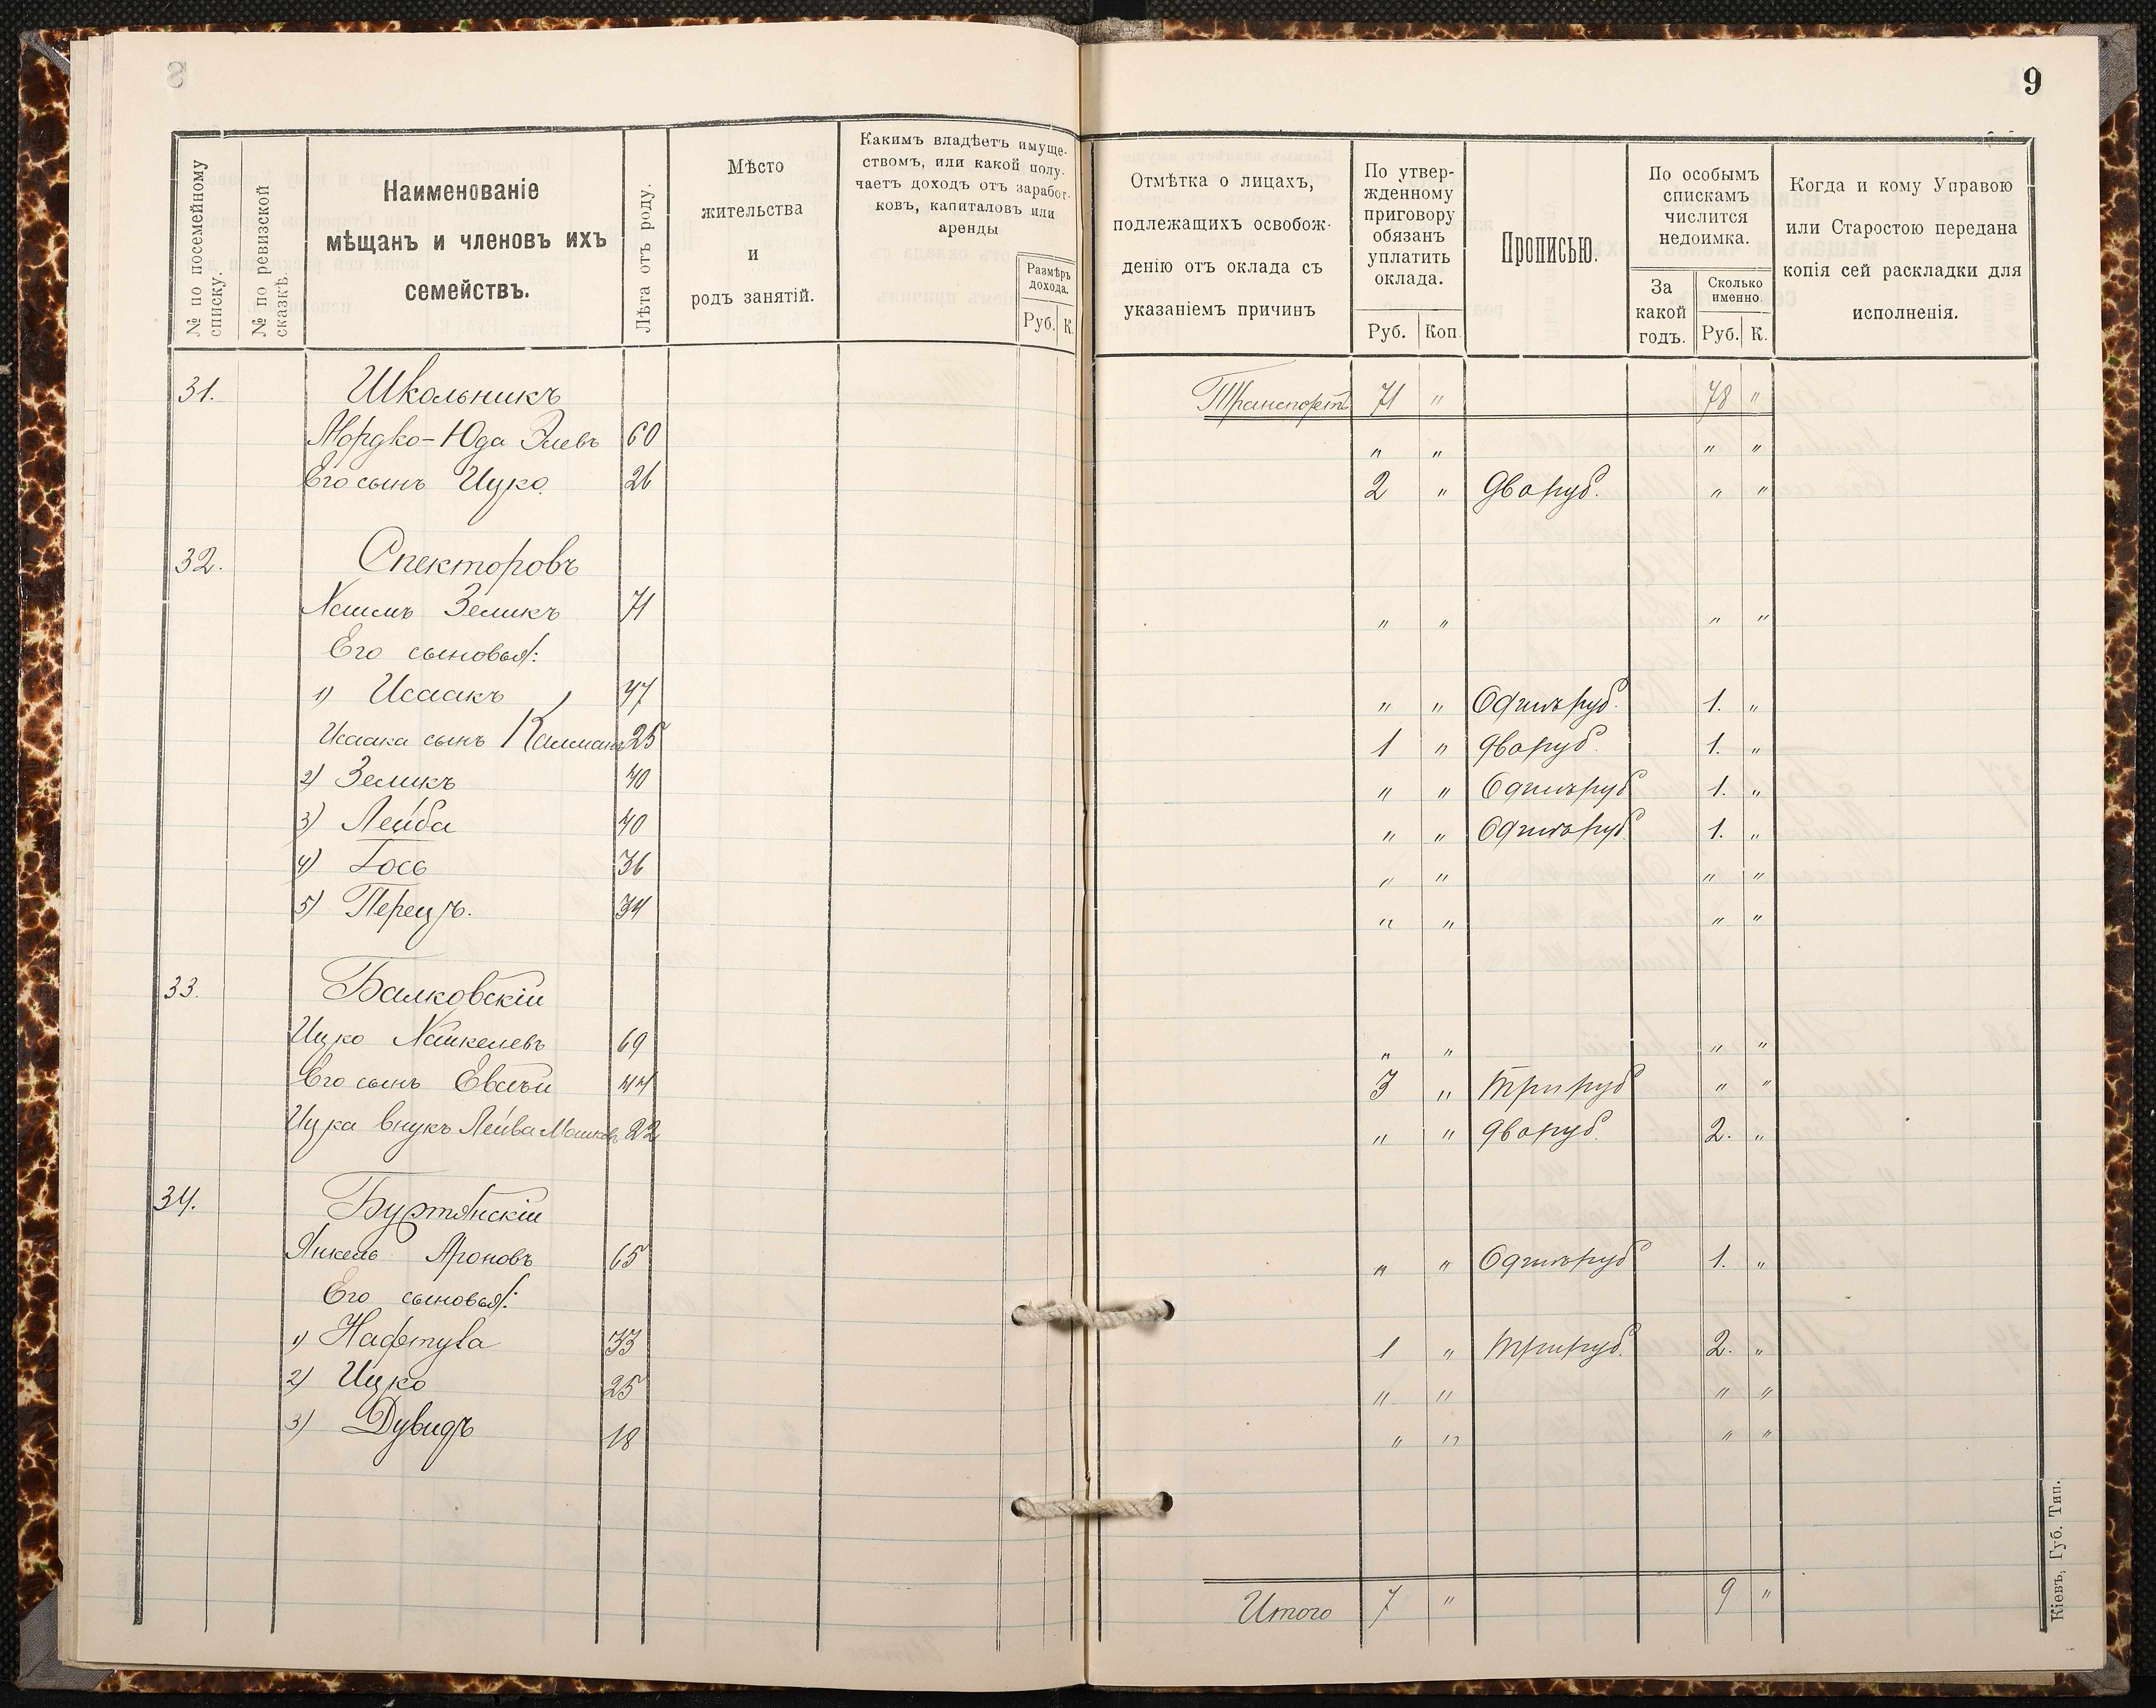 8
9
№ по посемейному
списку.
№ по ревизской
сказкѣ.
Наименованіе
мѣщанъ и членовъ ихъ
семействъ.
Лѣта отъ роду.
Мѣсто
жительства
и
родъ занятій.
Какимъ владѣетъ имуще-
ствомъ, или какой полу-
чаетъ доходъ отъ заработ-
ковъ, капиталовъ или
аренды
Размѣръ
дохода.
Руб. К.
Отмѣтка о лицахъ,
подлежащихъ освобож-
денію отъ оклада съ
указаніемъ причинъ
По утвер-
жденному
приговору
обязанъ
уплатить
оклада.
Руб. Коп.
Прописью.
По особымъ
спискамъ
числится
недоимка.
За
какой
годъ.
Сколько
именно.
Руб. К.
Когда и кому Управою
или Старостою передана
копія сей раскладки для
исполненія.
31. Школьникъ Транспортъ 71 " 78 "
Мордко-Юда Элевъ 60 " " " "
Его сынъ Ицко 26 2 " Два руб. " "
32. Спекторовъ
Хаимъ Зеликъ 71 " " " "
Его сыновья:
1) Исаакъ 47 " " Одинъ руб. 1. "
Исаака сынъ Калманъ 25 1 " Два руб. 1. "
2) Зеликъ 40 " " Одинъ руб 1. "
3) Лейба 40 " " Одинъ руб. 1. "
4) Гось 36 " " " "
5) Перецъ. 34 " " " "
33. Балковскій
Ицко Хайкелевъ 69 " " " "
Его сынъ Евсѣй 44 3 " Три руб " "
Ицка внукъ Лейва Машковъ 22 " " Два руб. 2. "
34. Буртянскій
Янкель Ароновъ 65 " " Одинъ руб 1. "
Его сыновья:
1) Нафтула 33 1 " Три руб. 2. "
2) Ицко 25 " " " "
3) Дувидъ 18 " " " "
Итого 7 " 9 "
Кіевъ, Губ. Тип.